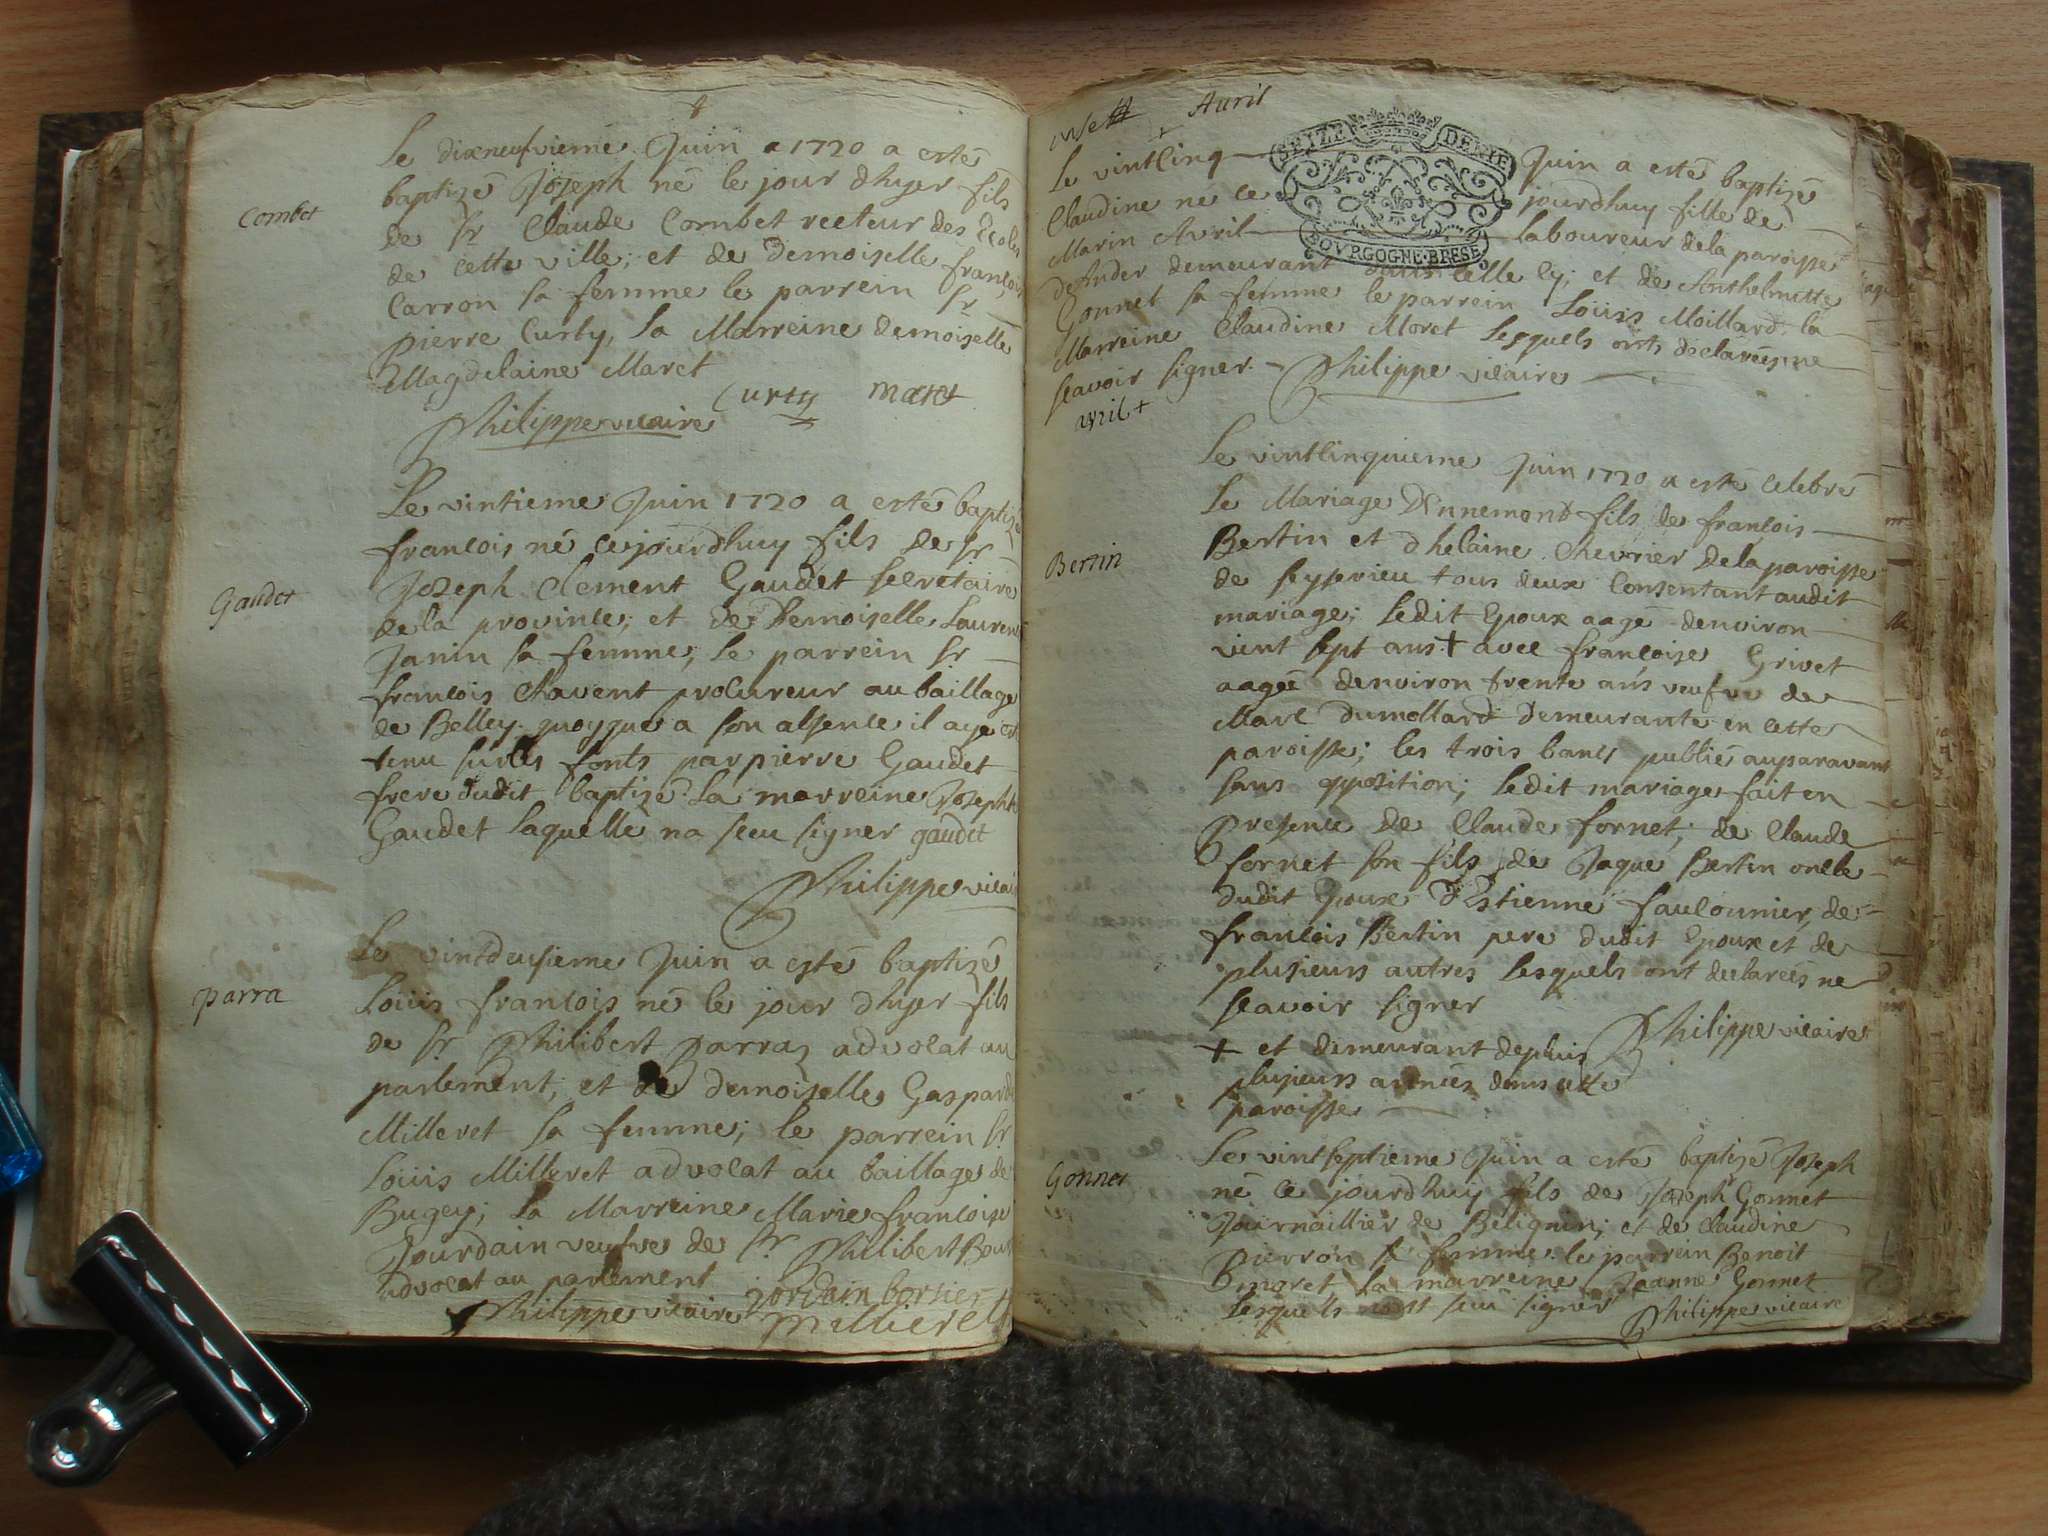 Combet
Le dixneufvieme Juin a 1720 a esté
baptizé Joseph né le jour dhyer fils
de Sr Claude Combet recteur des Ecoles
de cette ville; et de Demoiselle françoise
Carron sa femme le parrein Sr
pierre Curty, la Marreine demoiselle
Magdelaine Maret
Curty Maret
Philippe vicaire
Gaudet
Le vintieme Juin 1720 a esté baptizé
francois né cejourdhuy fils de Sr
Joseph Clement Gaudet secretaire
de la province; et de Demoiselle Laurence
Janin sa femme; le parrein Sr
francois Chavent procureur au baillage
de Belley quoyque a son absence il aye esté
tenu sur les fonts par pierre Gaudet
frere dudit baptizé la marreine Josephte
Gaudet laquelle na sceu signer gaudet
Philippe vicaire
parra
Le vintdeusieme Juin a esté baptizé
Loüis francois né le jour dhyer fils
de Sr Philibert parraz advocat au
parlement; et de demoiselle Gasparde
Milleret sa femme; le parrein Sr
Loüis Milleret advocat au baillage de
Bugey; la Marreine Marie francoise
Jourdain veufve de Sr Philibert
advocat au parlement
Philippe vicaire jordain bortier
millieret
Avril
Le vintcinq Juin a esté baptizé
Claudine né ce jourdhuy fille de
Marin Avril laboureur de la paroisse
demeurant dans celle cy; et de Anthelmette
Gonnet sa femme le parrein Loüis Moillard la
Marreine Claudine Moret lesquels onts déclarées ne
scavoir signer. Philippe vicaire
vril +
SEIZE DENIE
BOVRGOGNE·BRESE
Bertin
Le vintcinquieme Juin 1720 a esté celebré
Le Mariage DEnnemond fils de francois
Bertin et dhelaine Chevrier de la paroisse
de seysserieu tous deux Consentant audit
mariage; ledit Epoux aagé denviron
vint sept ans + avec francoise Grivet
aagée denviron trente ans veufve de
Marc Dumollard Demeurante en cette
paroisse; les trois bancs publié auparavant
sans opposition; ledit mariage fait en
presence de Claude fornet; de Claude
fornet son fils, de Jaque Bertin oncle
dudit Epoux DEstienne faulounier, de
francois Bertin pere dudit Epoux et de
plusieurs autres lesquels ont declareés ne
scavoir signer
Philippe vicaire
+ et demeurant depuis
plusieurs années dans cette
paroisse
Gonnet
Le vintseptieme Juin a esté baptizé Joseph
né ce jourdhuy fils de Joseph Gonnet
Journaillier de Bélignin; et de Claudine
pierron sa femme le parrein Benoit
moret la marreine Jeanne Gonnet
Lesquels nont sceu signer Philippe vicaire